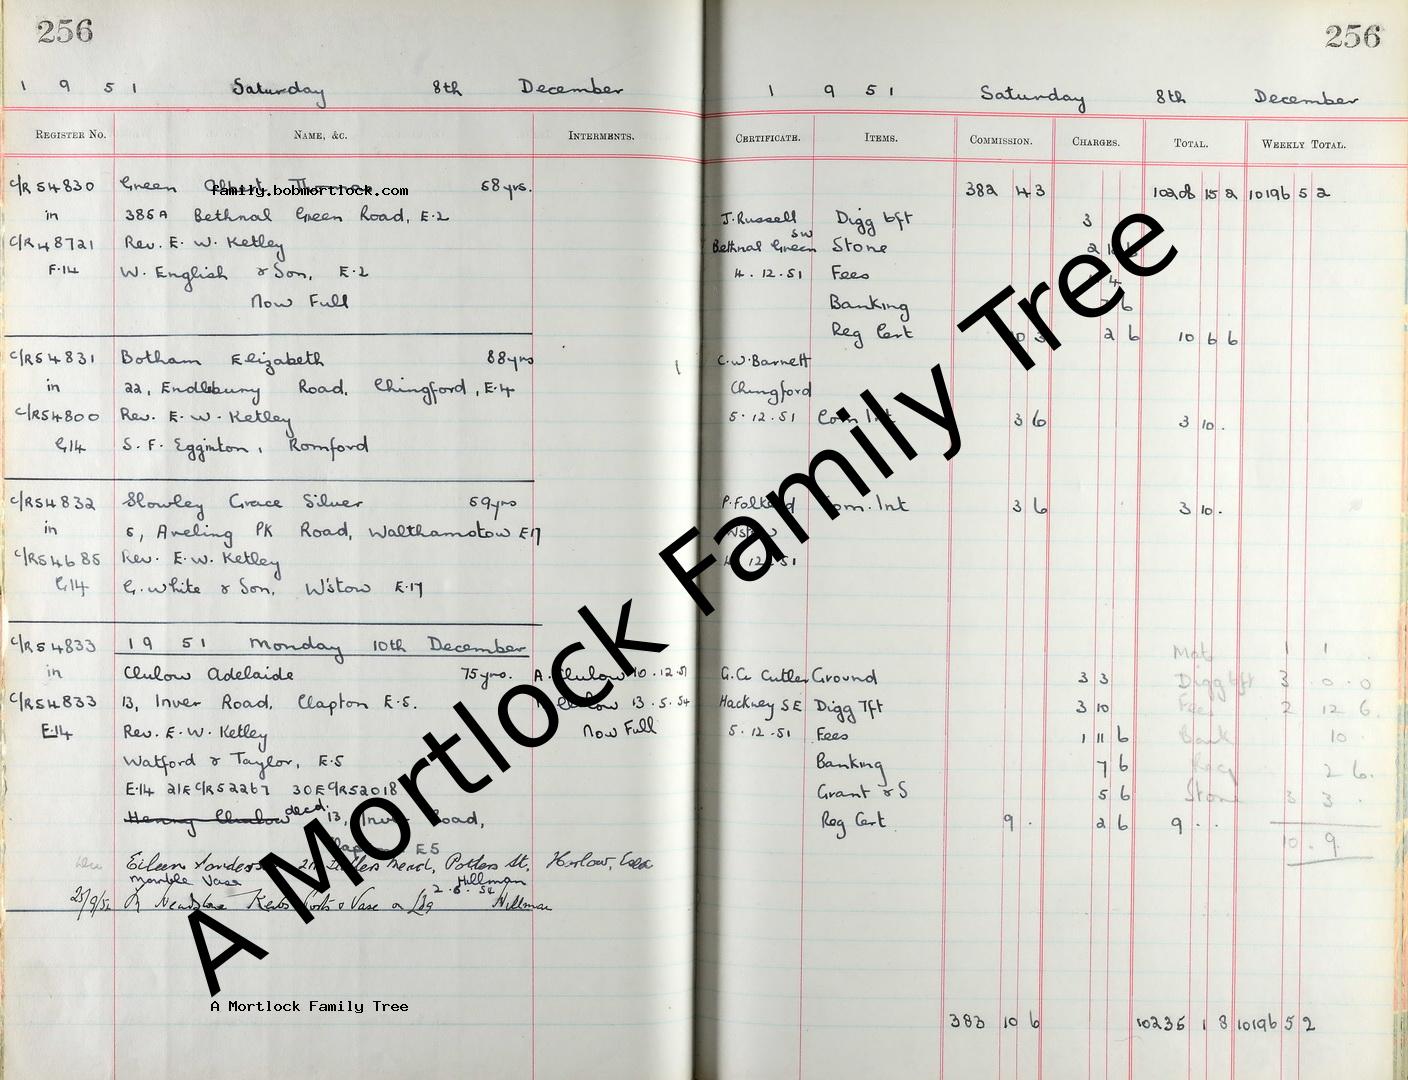 256
1951 Saturday 8th December
REGISTER NO. NAME, &C. INTERMENTS.
C/R 54830 Green 68yrs.
family.bobmortlock.com
in 385A Bethnal Green Road, E.2
C/R 48721 Rev. E. W. Ketley
F.14 W. English & Son, E.2
Now Full
C/R54831 Botham Elizabeth 88yrs
in 22, Endlebury Road, Chingford, E.4
C/R54800 Rev. E. W. Ketley
G14 S. F. Egginton, Romford
C/R54832 Slowley Grace Silver 69yrs
in 6, Aveling PK Road, Walthamstow E17
C/R54685 Rev. E. W. Ketley
G14 G. White & Son, W'stow E.17
C/R54833 1951 Monday 10th December
in Clulow Adelaide 75yrs. A. Clulow 10.12.51
C/R54833 13, Inver Road, Clapton E.5. Clulow 13.5.54
E.14 Rev. E. W. Ketley Now Full
Watford & Taylor, E.5
E.14 21E C/R52267 30E C/R52018
Henry Clulow decd. 13, Inver Road,
Clapton E5
Eileen Potters St, Harlow, Essex
Marble Vase 2.8.54 Hillman
Headstone Kerbs Posts & Vase on Ldg Hillman
A Mortlock Family Tree
256
1951 Saturday 8th December
CERTIFICATE. ITEMS. COMMISSION. CHARGES. TOTAL. WEEKLY TOTAL.
382 4 3 10208 15 2 10196 5 2
J. Russell Digg 6ft 3
SW
Bethnal Green Stone 2
4.12.51 Fees 4
Banking 7 6
Reg Cert 10 3 2 6 10 6 6
1 C. W. Barnett
Chingford
5.12.51 Com Int 3 6 3 10.
Com. Int 3 6 3 10.
W'stow
12.51
Mat 1 1
G. C. Cutler Ground 3 3 Digg 6ft 3.0.0
Hackney SE Digg 7ft 3 10 Fees 2 12 6.
5.12.51 Fees 1 11 6 Bank 10.
Banking 7 6 2 6.
Grant & S 5 6 Stone 3 3.
Reg Cert 9. 2 6 9..
10.9.
383 10 6 10235 1 8 10196 5 2
A Mortlock Family Tree